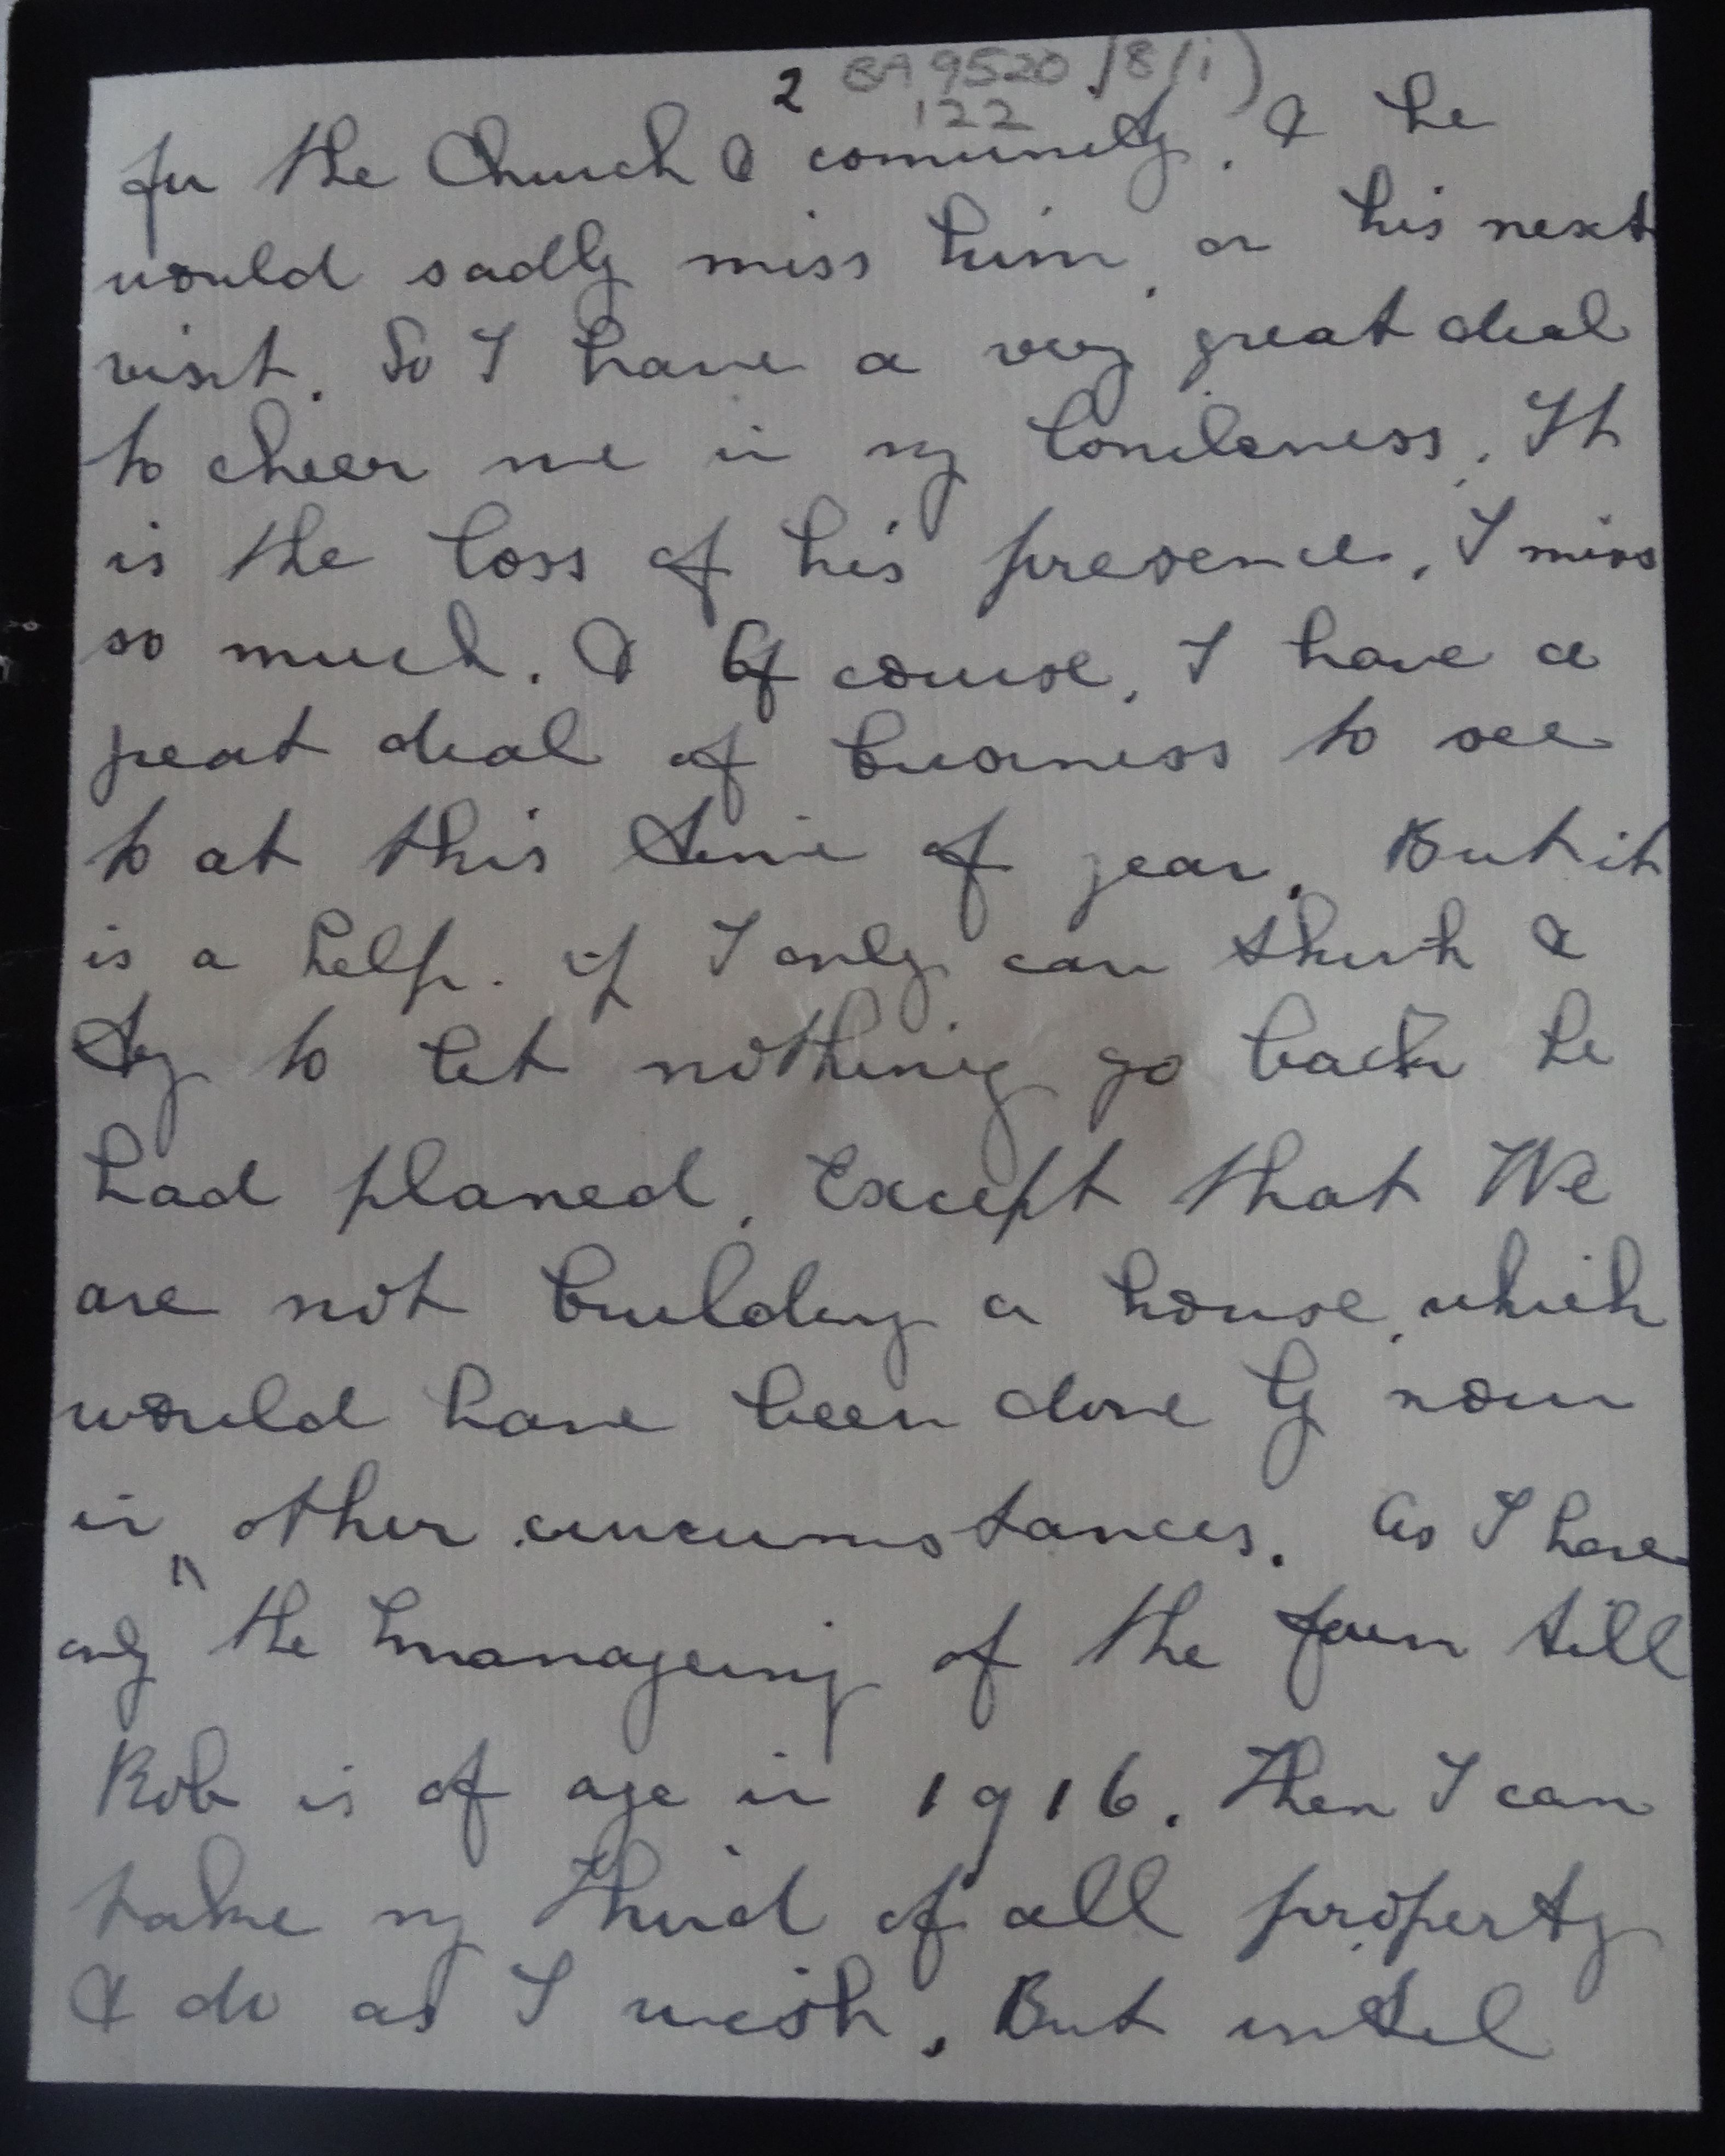 2 BA 9520/8(i)
122
for the Church & comunity. & he
would sadly miss him, on his next
visit. So I have a very great deal
to cheer me in my loneleness. It
is the loss of his presence, I miss
so much. & Of course, I have a
great deal of business to see
to at this time of year. But it
is a help. if I only can think &
try to let nothing go back he
had planed. Except that We
are not building a house, which
would have been done by now
in other circumstances. As I have
"
only the manageing of the farm till
Rob is of age in 1916. Then I can
take my Third of all property
& do as I wish. But untel